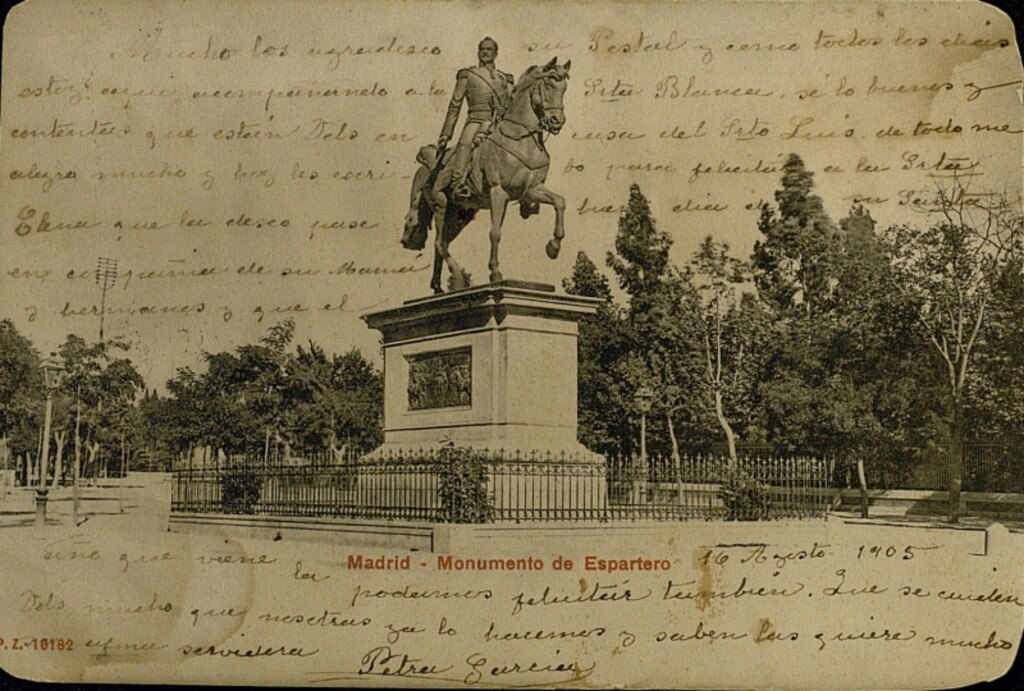 Mucho les agradesco su Postal y como todos los dias
estoy aqui acompañando a la Srta Blanca, sé lo buenos y
contentos que están Vds en casa del Srto Luis, de todo me
alegro mucho y hoy les escribo para felicitar a la Srta
Elena que la deseo pase buen dia de su Santo
en compañia de su Mamá
y hermanos y que el
año que viene la podamos felicitar tambien. Que se cuiden
Madrid - Monumento de Espartero
16 Agosto 1905
Vds mucho que nosotras ya lo hacemos y saben las quiere mucho
P.Z.-10182
afma servidora
Petra García